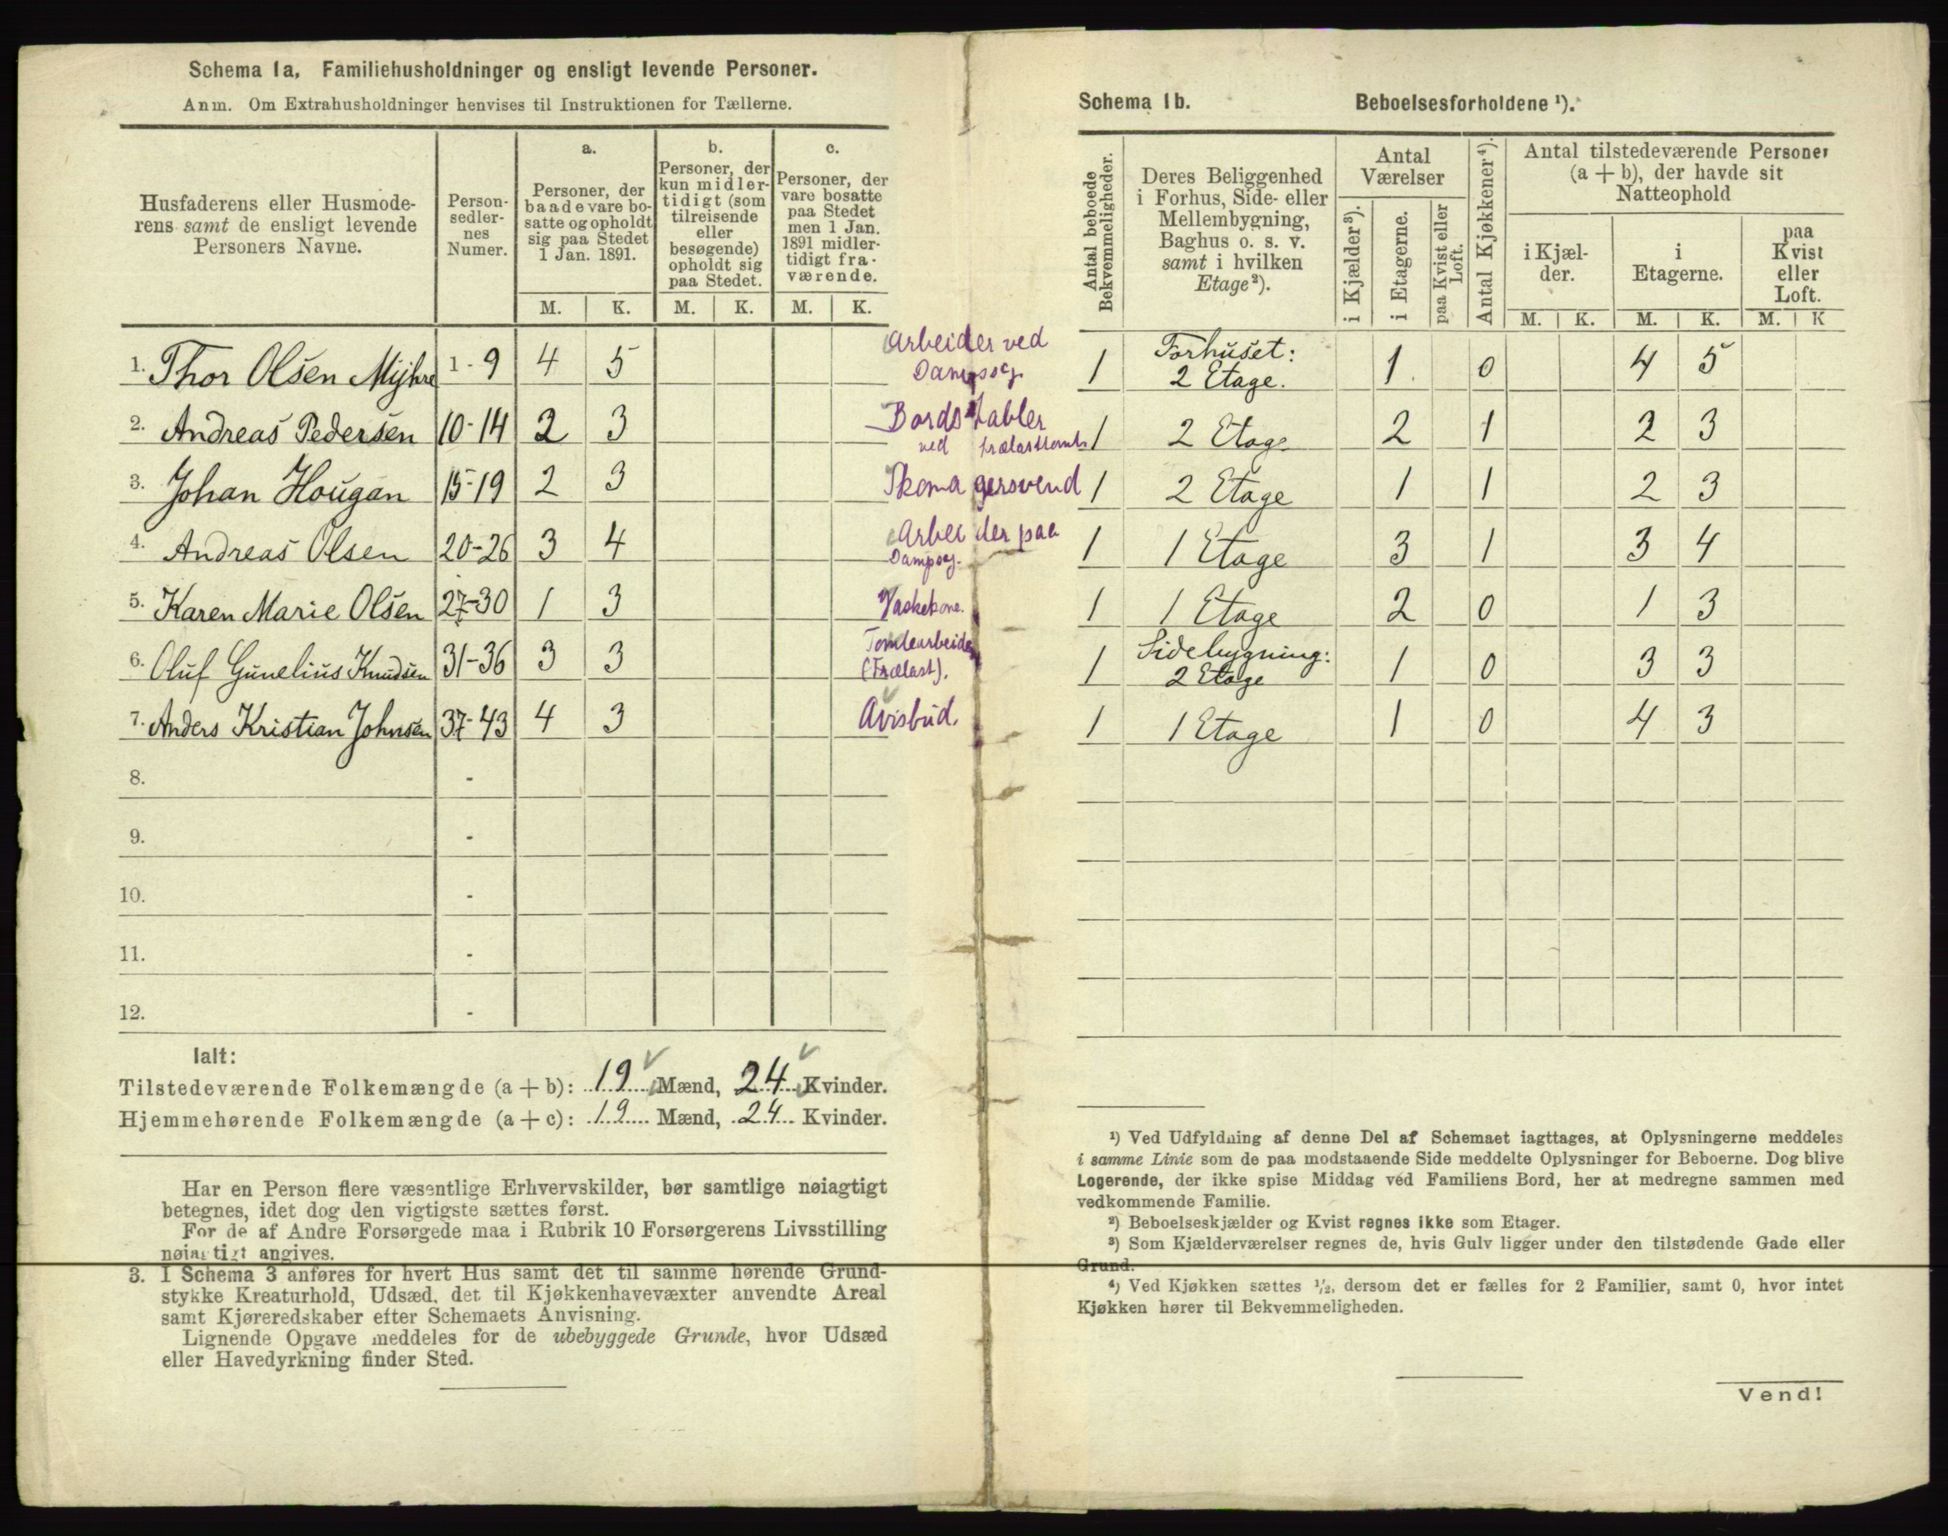 Schema 1a, Familiehusholdninger og ensligt levende Personer.
Anm. Om Extrahusholdninger henvises til Instruktionen for Tællerne.
Husfaderens eller Husmoderens samt de ensligt levende Personers Navne.
Personsedlernes Numer.
a. Personer, der baade vare bosatte og opholdt sig paa Stedet 1 Jan. 1891.
b. Personer, der kun midlertidigt (som tilreisende eller besøgende) opholdt sig paa Stedet.
c. Personer, der vare bosatte paa Stedet men 1 Jan. 1891 midlertidigt fraværende.
M. K. M. K. M. K.
1. Thor Olsen Myhre 1-9 4 5 Arbeider ved Dampsag.
2. Andreas Pedersen 10-14 2 3 Bordstabler ved trælasttomt
3. Johan Hougan 15-19 2 3 Skomagersvend
4. Andreas Olsen 20-26 3 4 Arbeider paa Dampsag.
5. Karen Marie Olsen 27-30 1 3 Vaskekone.
6. Oluf Gunelius Knudsen 31-36 3 3 Tomtearbeider (Trælast).
7. Anders Kristian Johnsen 37-43 4 3 Avisbud.
8. -
9. -
10. -
11. -
12. -
Ialt:
Tilstedeværende Folkemængde (a + b): 19 Mænd, 24 Kvinder.
Hjemmehørende Folkemængde (a + c): 19 Mænd, 24 Kvinder.
Har en Person flere væsentlige Erhvervskilder, bør samtlige nøiagtigt
betegnes, idet dog den vigtigste sættes først.
For de af Andre Forsørgede maa i Rubrik 10 Forsørgerens Livsstilling
nøiagtigt angives.
3. I Schema 3 anføres for hvert Hus samt det til samme hørende Grund-
stykke Kreaturhold, Udsæd, det til Kjøkkenhavevæxter anvendte Areal
samt Kjøreredskaber efter Schemaets Anvisning.
Lignende Opgave meddeles for de ubebyggede Grunde, hvor Udsæd
eller Havedyrkning finder Sted.
Schema 1b. Beboelsesforholdene ¹).
Antal beboede Bekvemmeligheder.
Deres Beliggenhed i Forhus, Side- eller Mellembygning, Baghus o. s. v. samt i hvilken Etage ²).
Antal Værelser
i Kjælder ³).
i Etagerne.
paa Kvist eller Loft.
Antal Kjøkkener ⁴).
Antal tilstedeværende Personer (a + b), der havde sit Natteophold
i Kjælder.
i Etagerne.
paa Kvist eller Loft.
M. K. M. K. M. K
1 Forhuset: 2 Etage. 1 0 4 5
1 2 Etage 2 1 2 3
1 2 Etage 1 1 2 3
1 1 Etage 3 1 3 4
1 1 Etage 2 0 1 3
1 Sidebygning: 2 Etage 1 0 3 3
1 1 Etage 1 0 4 3
¹) Ved Udfyldning af denne Del af Schemaet iagttages, at Oplysningerne meddeles
i samme Linie som de paa modstaaende Side meddelte Oplysninger for Beboerne. Dog blive
Logerende, der ikke spise Middag ved Familiens Bord, her at medregne sammen med
vedkommende Familie.
²) Beboelseskjælder og Kvist regnes ikke som Etager.
³) Som Kjælderværelser regnes de, hvis Gulv ligger under den tilstødende Gade eller
Grund.
⁴) Ved Kjøkken sættes ½, dersom det er fælles for 2 Familier, samt 0, hvor intet
Kjøkken hører til Bekvemmeligheden.
Vend!